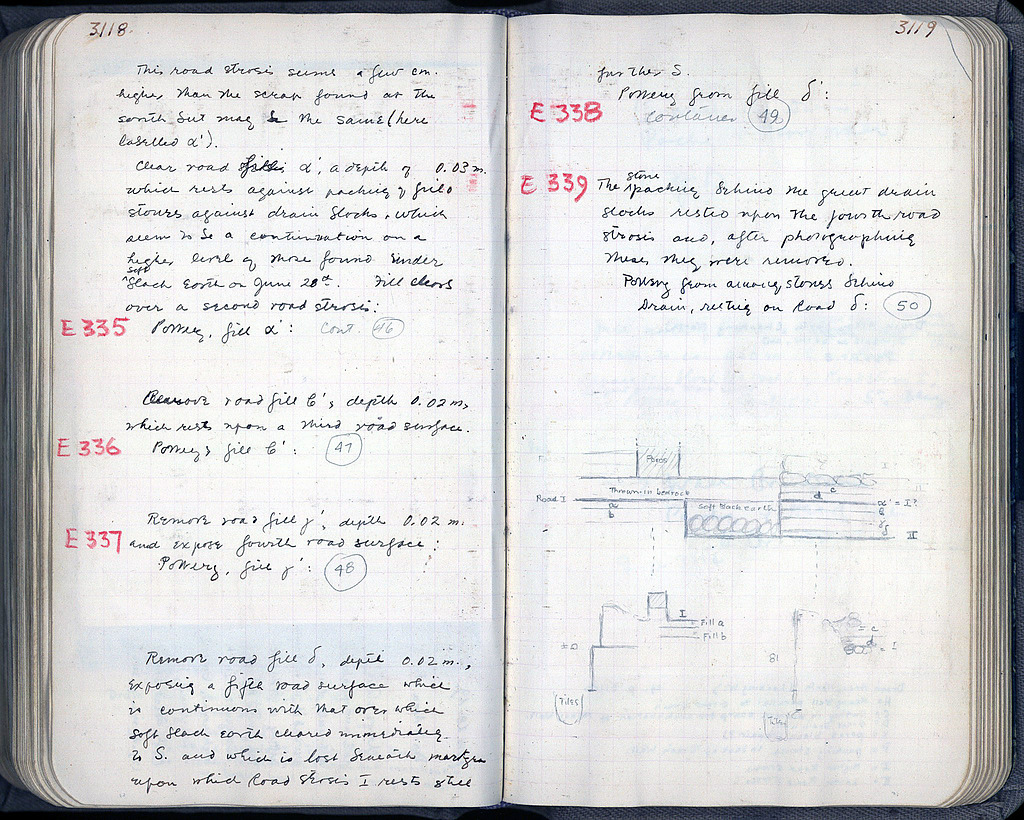 3118.
This road strosis seems a few cm.
higher than the scrap found at the
south but may be the same (here
labelled α').
Clear road fill α', a depth of 0.03 m.
which rests against packing of field
stones against drain blocks, which
seem to be a continuation on a
higher level of those found under
soft
black earth on June 28th. Fill clears
over a second road strosis:
E 335 Pottery, fill α': Cont. 46
Remove road fill b', depth 0.02 m,
which rests upon a third road surface.
E 336 Pottery, fill b': 47
Remove road fill γ', depth 0.02 m.
E 337 and expose fourth road surface:
Pottery, fill γ': 48
Remove road fill δ, depth 0.02 m.,
exposing a fifth road surface which
is continuous with that over which
soft black earth cleared immediately
to S. and which is lost beneath
upon which Road Strosis I rests
3119
further S.
Pottery from fill δ':
E 338 container 49
stone
E 339 The packing behind the great drain
blocks rested upon the fourth road
strosis and, after photographing
these they were removed.
Pottery from among stones behind
Drain, resting on Road δ: 50
Poros
Thrown-in bedrock
Road I
a
b
soft black earth
c
d
α' = I?
II
I
Fill a
Fill b
Tiles
c
d
= I
Tiles